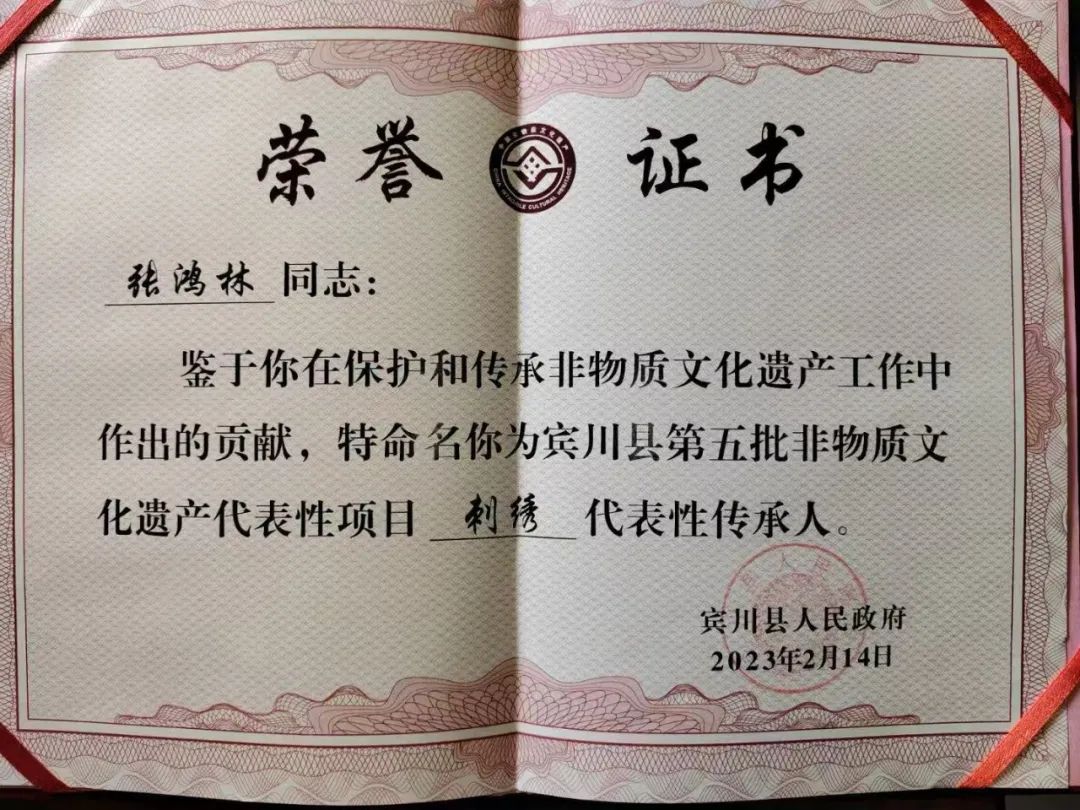 荣誉证书
中国非物质文化遗产
CHINA INTANGIBLE CULTURAL HERITAGE
张鸿林 同志：
鉴于你在保护和传承非物质文化遗产工作中
作出的贡献，特命名你为宾川县第五批非物质文
化遗产代表性项目 刺绣 代表性传承人。
宾川县人民政府
2023年2月14日